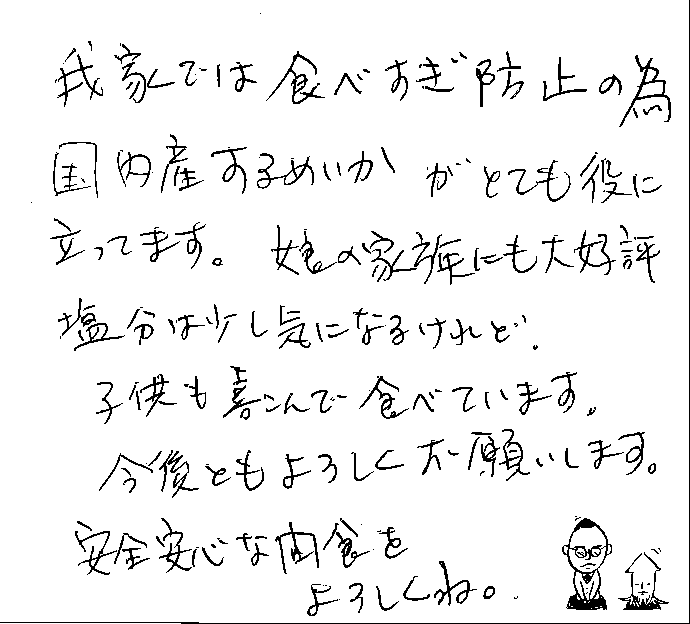 我家では食べすぎ防止の為
国内産するめいかがとても役に
立ってます。娘の家族にも大好評
塩分は少し気になるけれど、
子供も喜こんで食べています。
今後ともよろしくお願いします。
安全安心な肉食を
よろしくね。